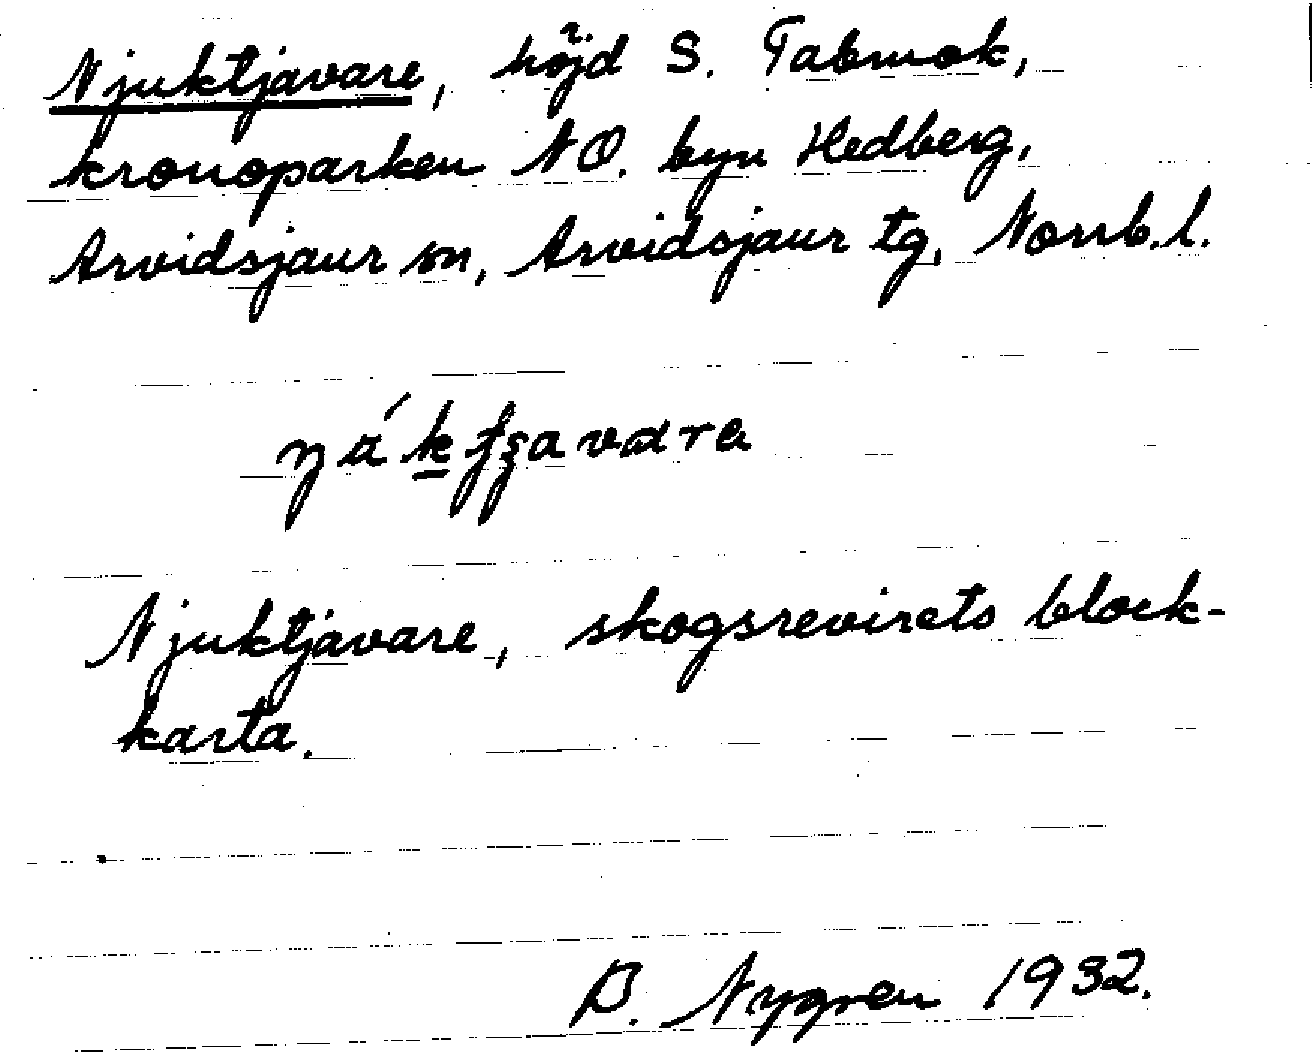 Njuktjavare, höjd S. Tabmok,
kronoparken NO. byn Hedberg,
Arvidsjaur sn, Arvidsjaur tg, Norrb.l.
Njuktjavare, skogsrevirets block-
karta.
B. Nygren 1932.